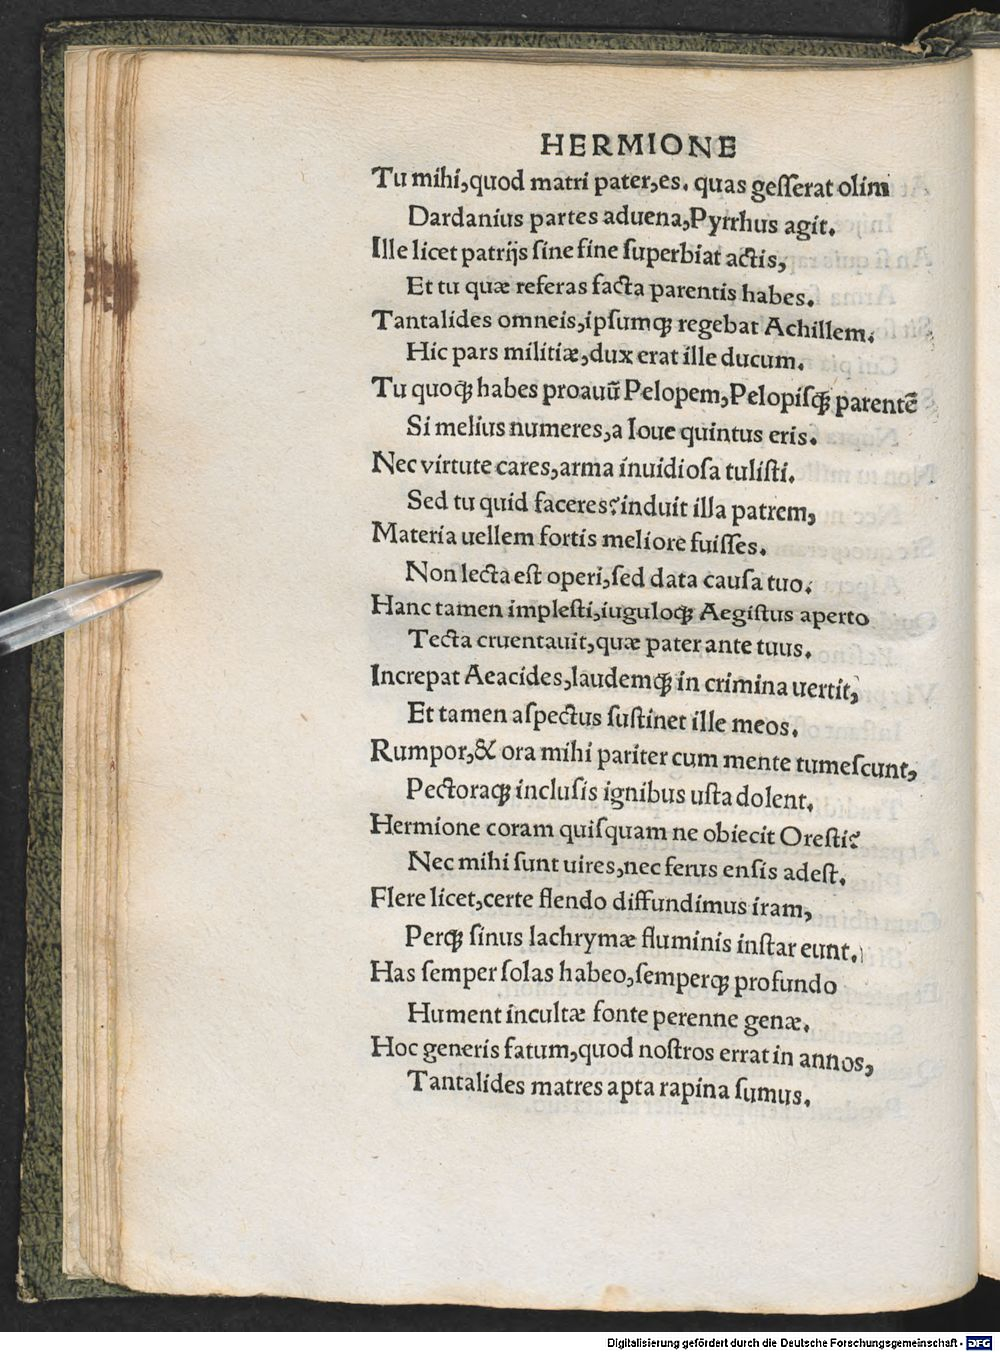 HERMIONE
Tu mihi,quod matri pater,es. quas geſſerat olim
Dardanius partes aduena,Pyrrhus agit.
Ille licet patrijs ſine fine ſuperbiat actis,
Et tu quæ referas facta parentis habes.
Tantalides omneis,ipſumqꝫ regebat Achillem.
Hic pars militiæ,dux erat ille ducum.
Tu quoqꝫ habes proauū Pelopem,Pelopiſqꝫ parentē
Si melius numeres,a Ioue quintus eris.
Nec virtute cares,arma inuidioſa tuliſti.
Sed tu quid faceres? induit illa patrem,
Materia uellem fortis meliore fuiſſes.
Non lecta eſt operi,ſed data cauſa tuo.
Hanc tamen impleſti,iuguloqꝫ Aegiſtus aperto
Tecta cruentauit,quæ pater ante tuus.
Increpat Aeacides,laudemqꝫ in crimina uertit,
Et tamen aſpectus ſuſtinet ille meos.
Rumpor,& ora mihi pariter cum mente tumeſcunt,
Pectoraqꝫ incluſis ignibus uſta dolent.
Hermione coram quiſquam ne obiecit Oreſti?
Nec mihi ſunt uires,nec ferus enſis adeſt.
Flere licet,certe flendo diffundimus iram,
Perqꝫ ſinus lachrymæ fluminis inſtar eunt.
Has ſemper ſolas habeo,ſemperqꝫ profundo
Hument incultæ fonte perenne genæ.
Hoc generis fatum,quod noſtros errat in annos,
Tantalides matres apta rapina ſumus.
Digitalisierung gefördert durch die Deutsche Forschungsgemeinschaft - DFG